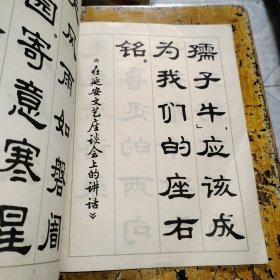 孺子牛」,应该成
为我们的座右
铭。
《在延安文艺座谈会上的讲话》
风雨如磐闇
园。寄意寒星